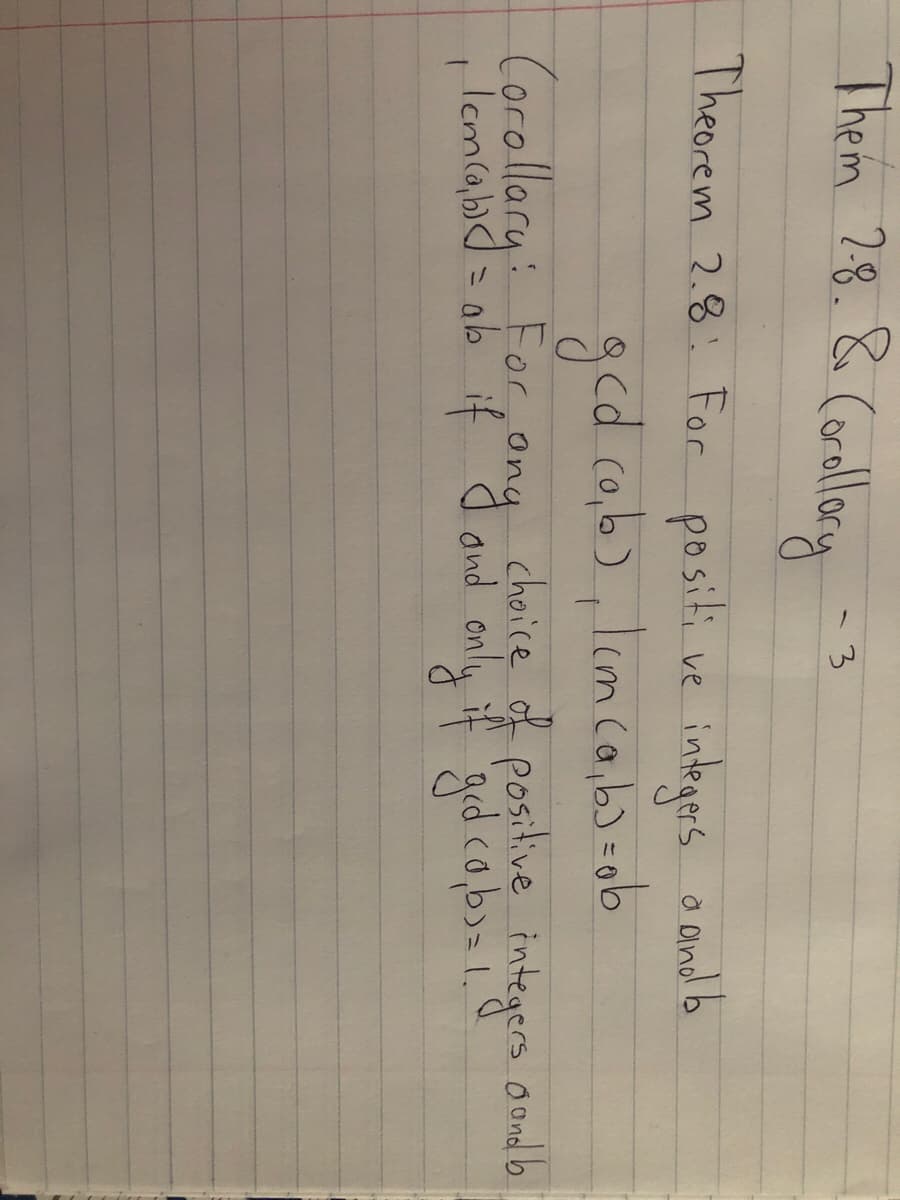 Them 2.8. & Corollary - 3
Theorem 2.8: For positive integers a and b
gcd (a,b), lcm (a,b) = ab
Corollary: For any choice of positive integers a and b
, lcm(a,b) = ab if and only if gcd (a,b) = 1.